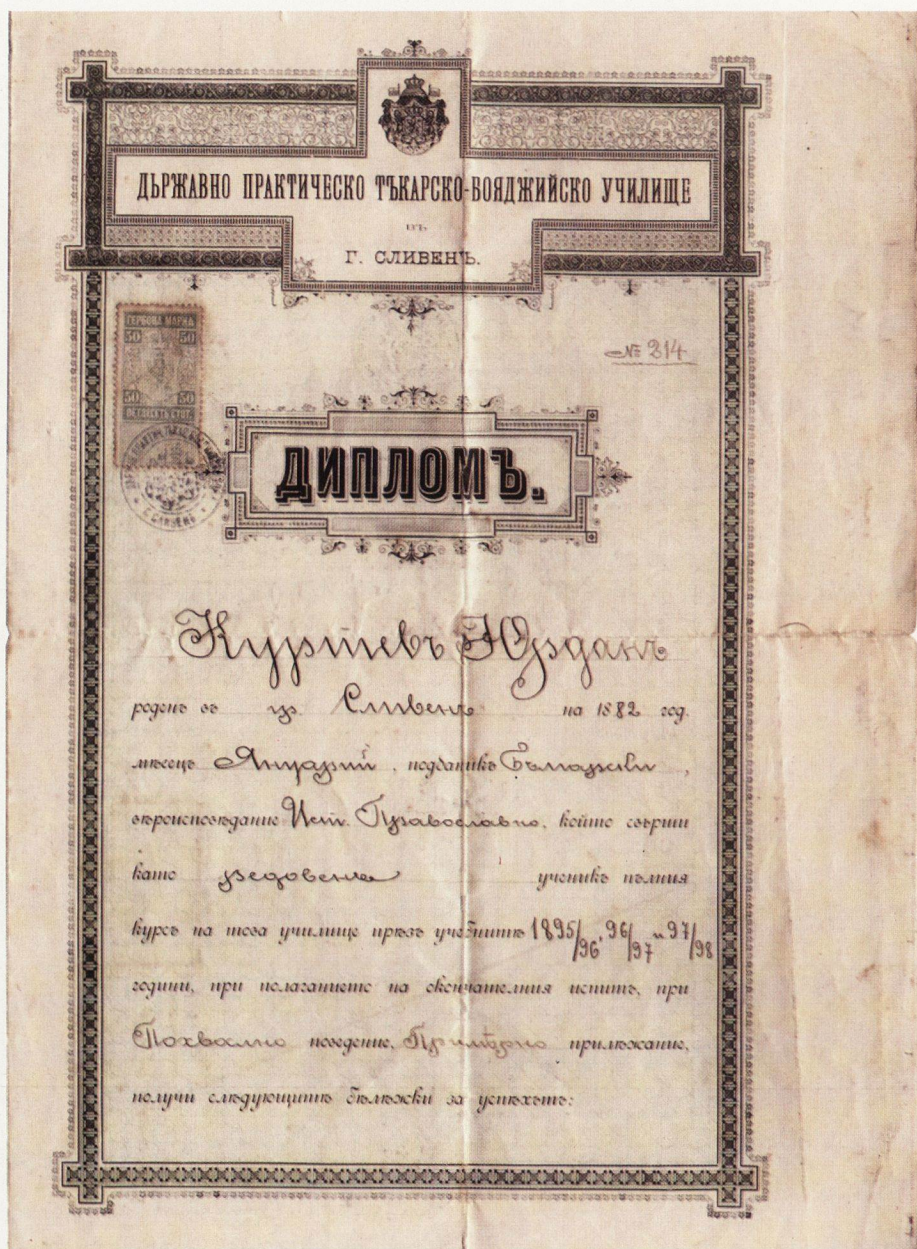 ДЪРЖАВНО ПРАКТИЧЕСКО ТЪКАРСКО-БОЯДЖИЙСКО УЧИЛИЩЕ
ВЪ
Г. СЛИВЕНЪ.
ГЕРБОВА МАРКА
50 50
50 50
ПЕТДЕСЕТЬ СТОТ.
№ 214
Г. СЛИВЕНЪ
ДИПЛОМЪ.
Куртевъ Юрданъ
роденъ въ гр. Сливенъ на 1882 год.
мѣсецъ Януарий, подданикъ Български,
вѣроисповѣдание Ист. Православно, който свърши
като редовенъ ученикъ пълния
курсъ на това училище прѣзъ учебнитѣ 1895/96, 96/97 и 97/98
години, при полаганието на окончателния испитъ, при
Похвално поведение, Примѣрно прилѣжание,
получи слѣдующитѣ бѣлѣжки за успѣхътъ: